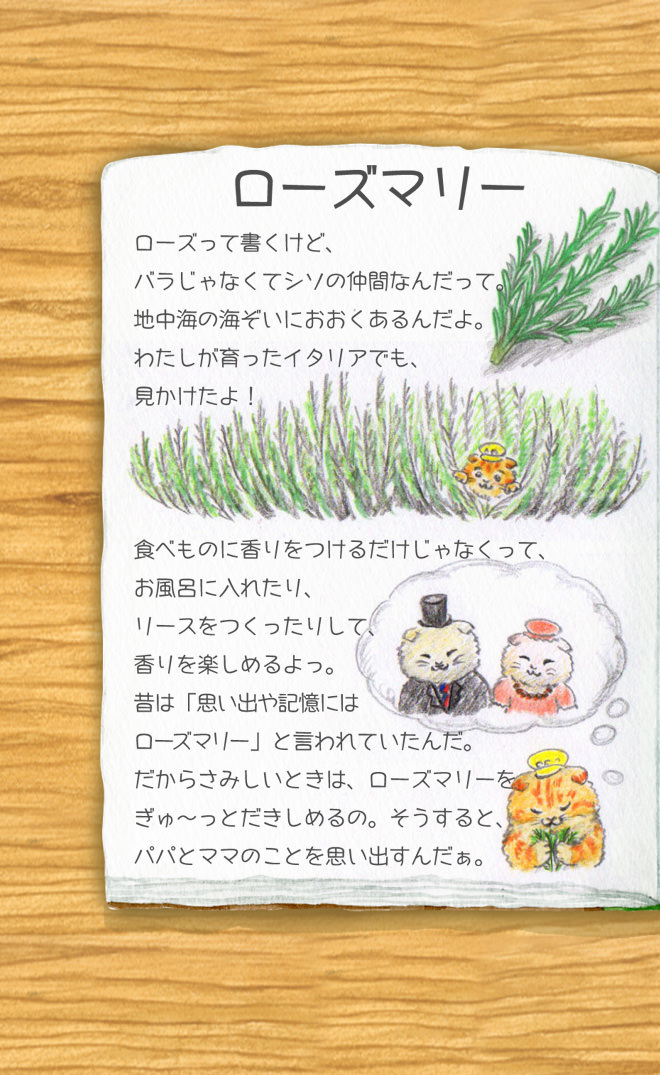 ローズマリー
ローズって書くけど、
バラじゃなくてシソの仲間なんだって。
地中海の海ぞいにおおくあるんだよ。
わたしが育ったイタリアでも、
見かけたよ！
食べものに香りをつけるだけじゃなくって、
お風呂に入れたり、
リースをつくったりして、
香りを楽しめるよっ。
昔は「思い出や記憶には
ローズマリー」と言われていたんだ。
だからさみしいときは、ローズマリーを
ぎゅ～っとだきしめるの。そうすると、
パパとママのことを思い出すんだぁ。